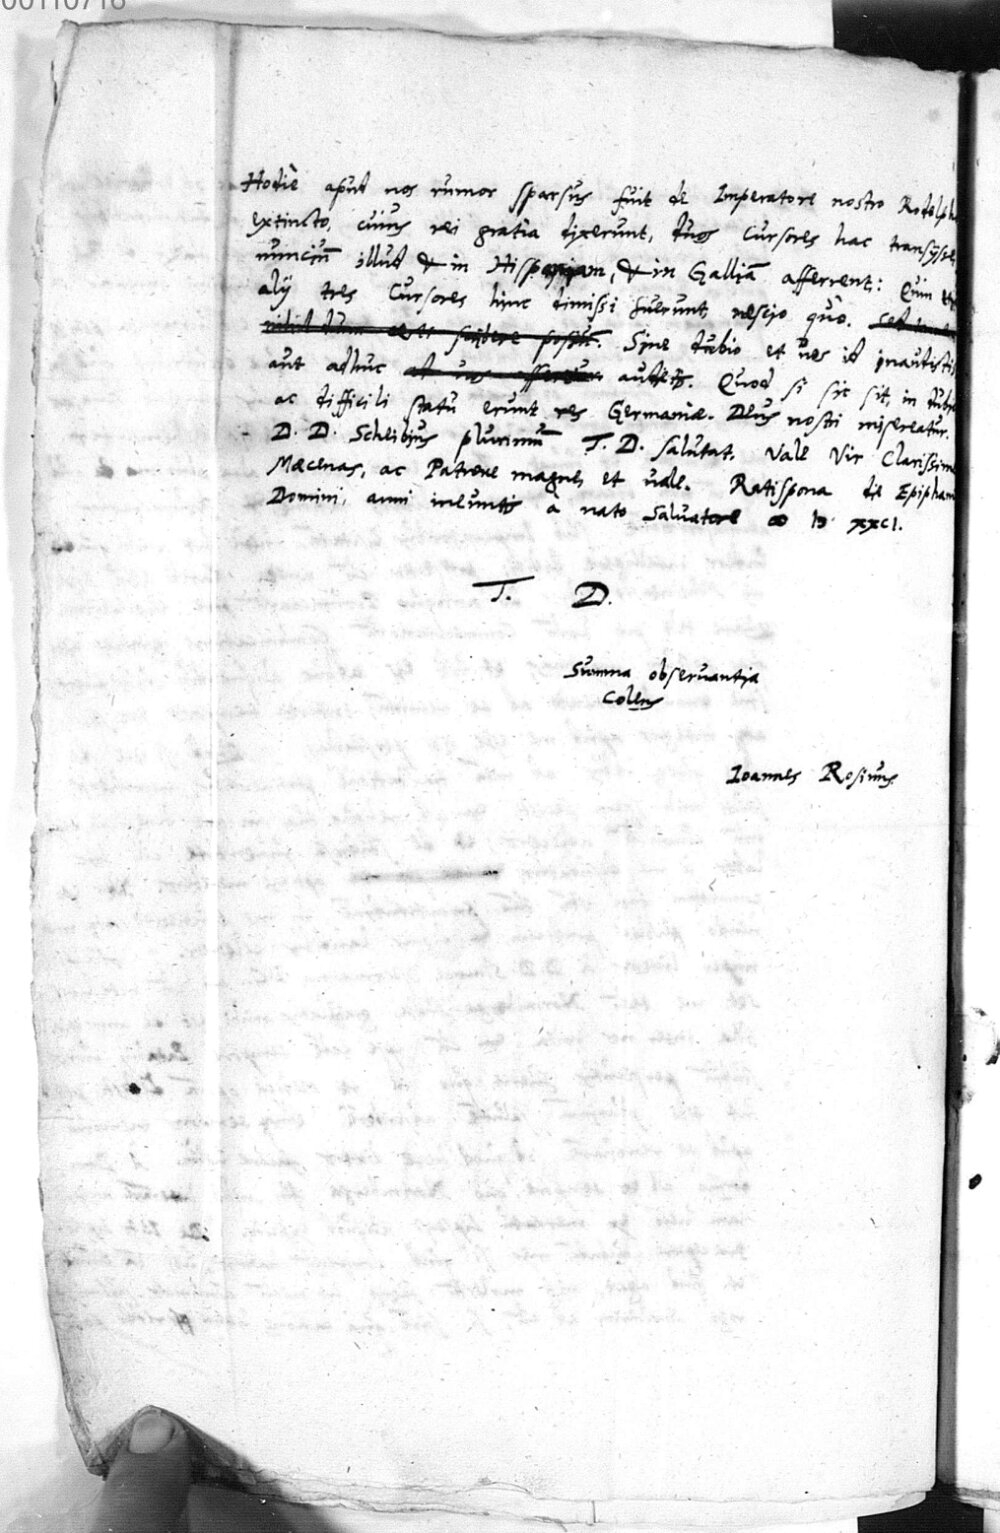 00110716
Hodiè apud nos rumor sparsus fuit de Imperatore nostro Rodolph
extincto, cuius rei gratia dixerunt, duos Cursores hac transijsse,
nunciũ illud & in Hispaniam, & in Galliã afferrent: Quin eti
alij tres Cursores hinc dimissi fuerunt nescio quò. sed
nihil dum scribere possũ. Sine dubio et vos id inaudistis
aut adhuc audietis. Quod si sic sit, in dubio
ac difficili statu erunt res Germaniæ. Deus nostri misereatur.
D. D. Scheibius plurimũ T. D. salutat. Vale Vir Clarissime
Mæcenas, ac Patrone magne, et vale. Ratispona die Epiphan
Domini, anni ineuntis à nato Salvatore ∞ D xxci.
T. D.
Summa observantia
Colens
Ioannes Rosinus.